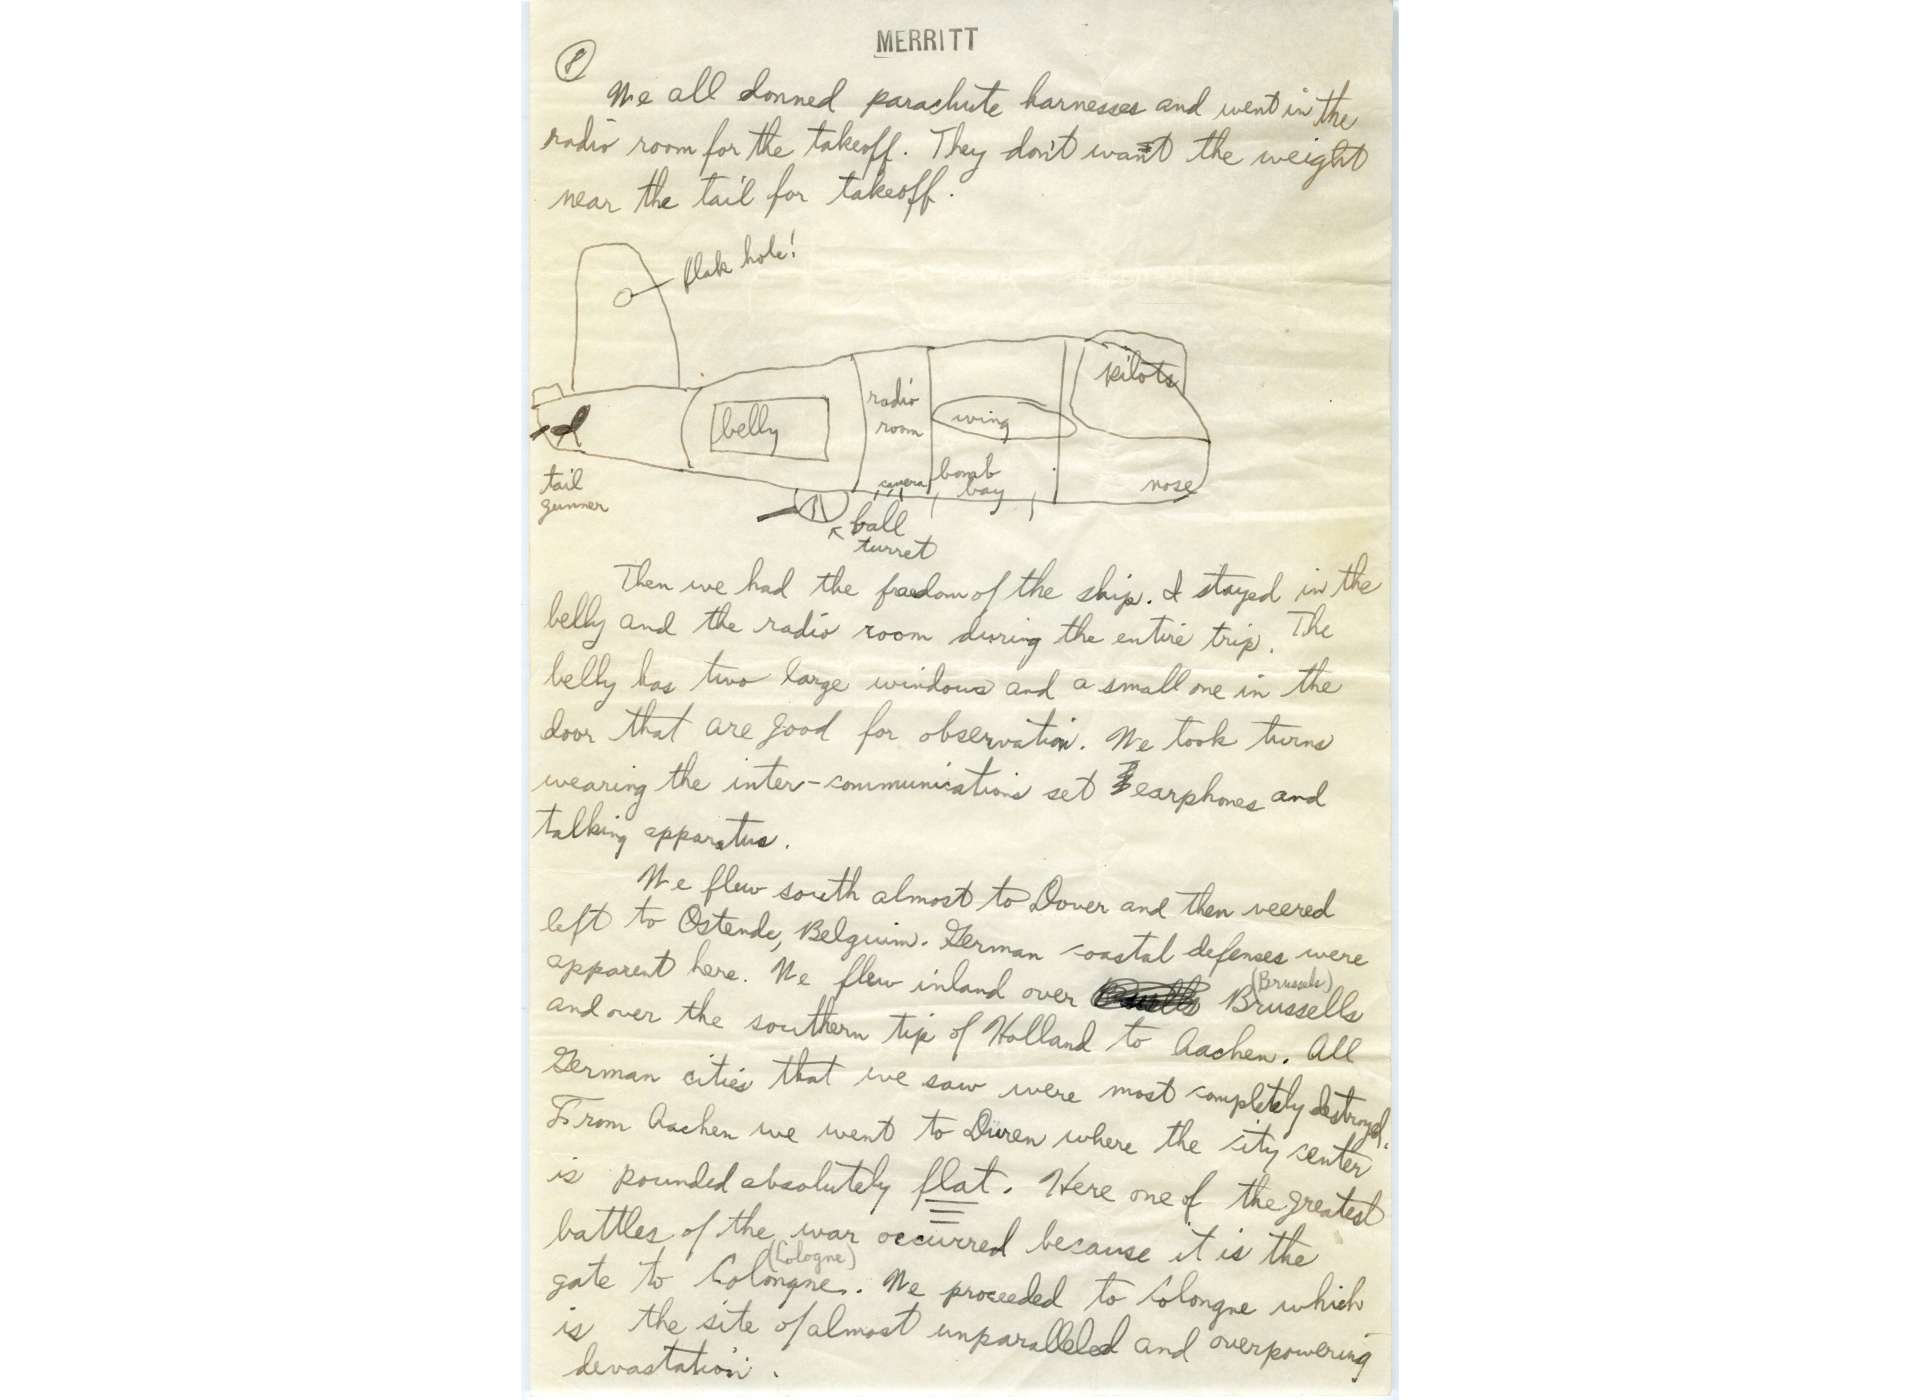 MERRITT
8
We all donned parachute harnesses and went in the
radio room for the takeoff. They don't want the weight
near the tail for takeoff.
flak hole!
pilots
radio
room
wing
belly
bomb
bay
camera
nose
tail
gunner
ball
turret
Then we had the freedom of the ship. I stayed in the
belly and the radio room during the entire trip. The
belly has two large windows and a small one in the
door that are good for observation. We took turns
wearing the inter-communications set earphones and
talking apparatus.
We flew south almost to Dover and then veered
left to Ostende, Belguim. German coastal defenses were
apparent here. We flew inland over Brussells
(Brussels)
and over the southern tip of Holland to Aachen. All
German cities that we saw were most completely destroyed.
From Aachen we went to Düren where the city center
is pounded absolutely flat. Here one of the greatest
battles of the war occurred because it is the
(Cologne)
gate to Colongne. We proceeded to Colongne which
is the site of almost unparalleled and overpowering
devastation.